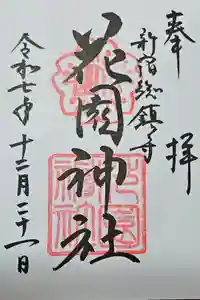 奉拝
新宿総鎮守
花園神社
令和七年十二月二十一日